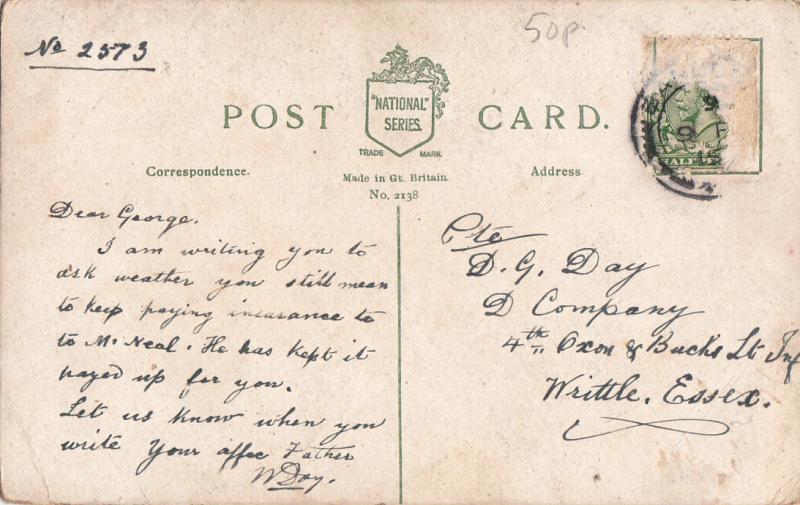 No 2573
50p
POST CARD.
"NATIONAL"
SERIES.
TRADE MARK.
Correspondence.
Made in Gt. Britain.
No. 2138
Address
Dear George.
I am writing you to
ask weather you still mean
to keep paying insurance to
to Mc Neal. He has kept it
payed up for you.
Let us know when you
write your affec Father
W Day.
Pte
D. G. Day
D Company
4th Oxon & Bucks Lt Inf
Writtle. Essex.